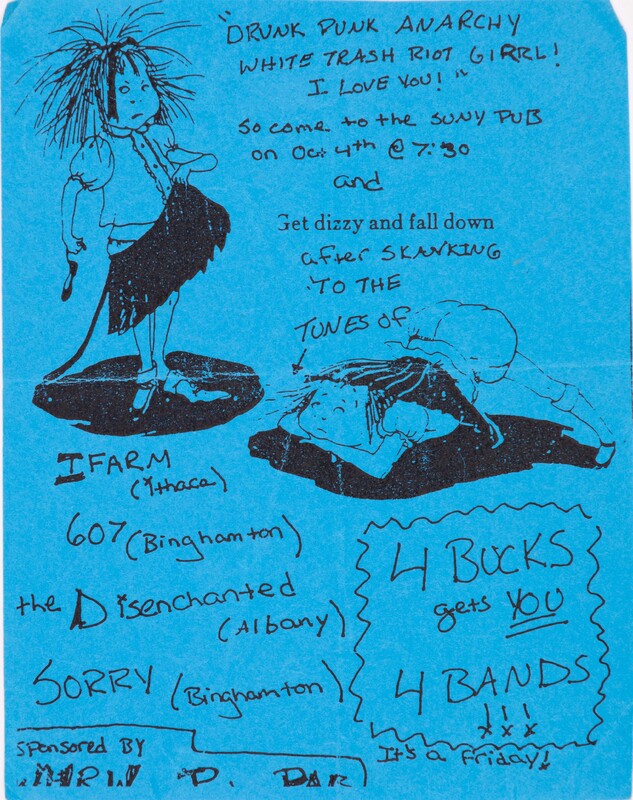 "DRUNK PUNK ANARCHY
WHITE TRASH RIOT GIRRL!
I LOVE YOU!"
So come to the SUNY PUB
on Oct 4th @ 7:30
and
Get dizzy and fall down
after SKANKING
TO THE
TUNES OF
I FARM
(Ithaca)
607 (Binghamton)
the Disenchanted
(Albany)
SORRY (Binghamton)
4 BUCKS
gets YOU
4 BANDS
!!!
It's a Friday!
Sponsored BY
D.